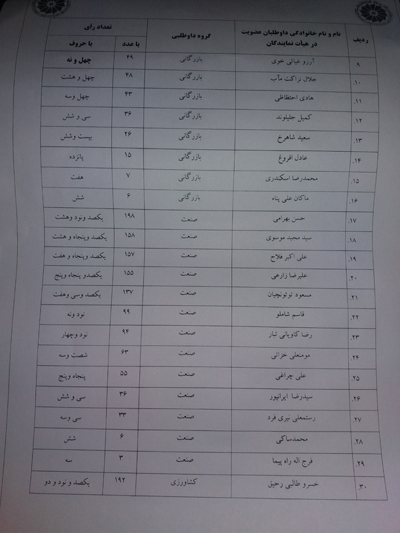 ردیف نام و نام خانوادگی داوطلبان عضویت در هیأت نمایندگان گروه داوطلبی تعداد رأی
با عدد با حروف
۹. آرزو غیاثی خوی بازرگانی ۴۹ چهل و نه
۱۰. جلال نزاکت مآب بازرگانی ۴۸ چهل و هشت
۱۱. هادی احتفاظی بازرگانی ۴۳ چهل وسه
۱۲. کمیل جلیلوند بازرگانی ۳۶ سی و شش
۱۳. سعید شاهرخ بازرگانی ۲۶ بیست وشش
۱۴. عادل افروغ بازرگانی ۱۵ پانزده
۱۵. محمدرضا اسکندری بازرگانی ۷ هفت
۱۶ ماکان علی پناه بازرگانی ۶ شش
۱۷. حسن بهرامی صنعت ۱۹۸ یکصد ونود وهشت
۱۸. سید محمد موسوی صنعت ۱۵۸ یکصد وپنجاه و هشت
۱۹. علی اکبر فلاح صنعت ۱۵۷ یکصد وپنجاه و هفت
۲۰. علیرضا زارعی صنعت ۱۵۵ یکصدو پنجاه وپنج
۲۱. مسعود توتونچیان صنعت ۱۳۷ یکصد وسی وهفت
۲۲. قاسم شاملو صنعت ۹۹ نود ونه
۲۳. رضا کاویانی تبار صنعت ۹۴ نود وچهار
۲۴. مومنعلی خزائی صنعت ۶۳ شصت وسه
۲۵. علی چراغی صنعت ۵۵ پنجاه وپنج
۲۶. سیدرضا ایرانپور صنعت ۳۶ سی و شش
۲۷. رستمعلی ببری فرد صنعت ۳۳ سی وسه
۲۸. محمدساکی صنعت ۶ شش
۲۹. فرج اله راه پیما صنعت ۳ سه
۳۰. خسرو طالبی رحیق کشاورزی ۱۹۲ یکصد و نود و دو